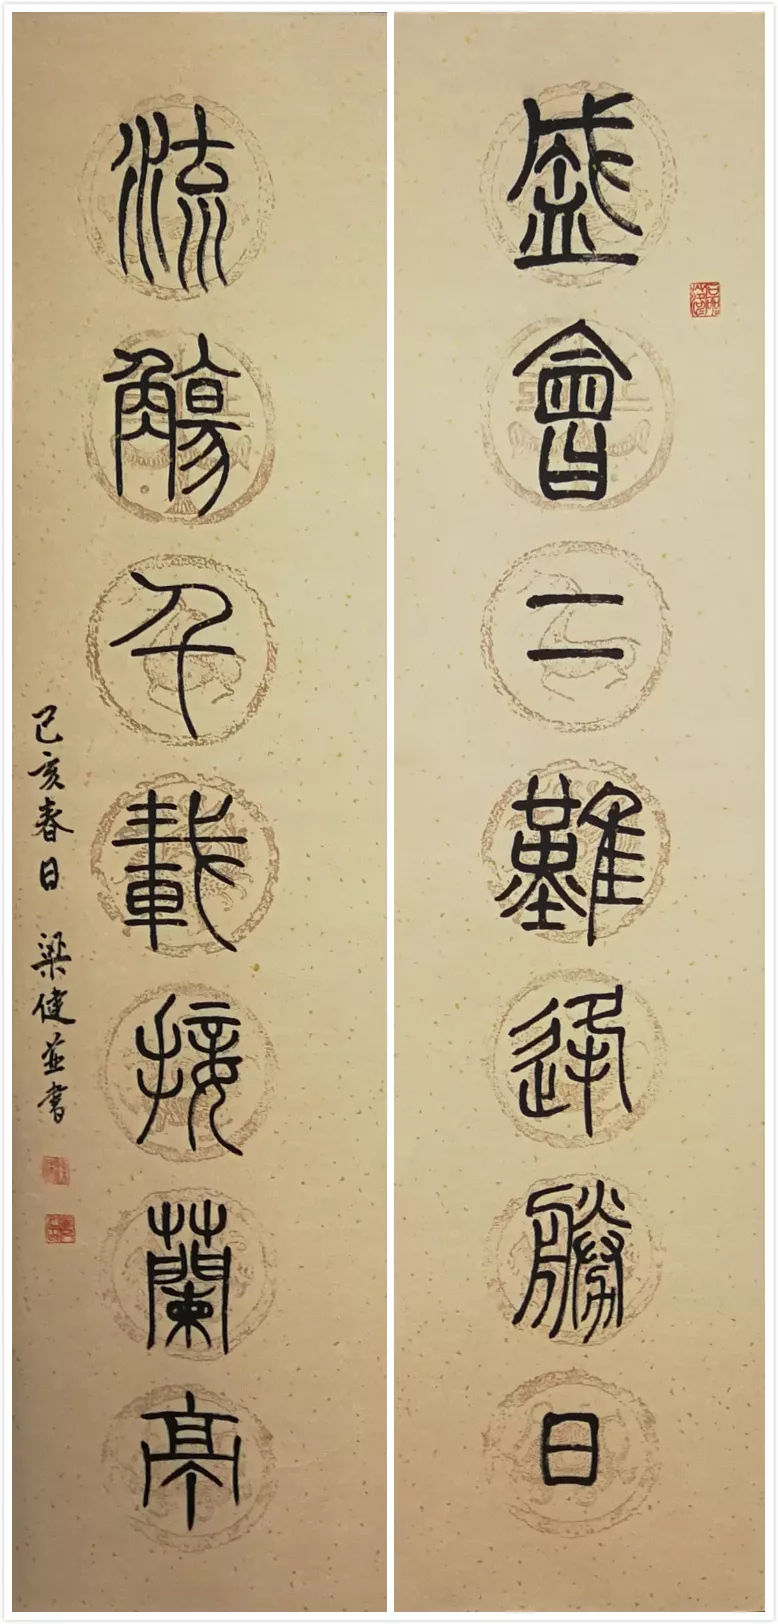 盛會二難逢勝日
流觴千載接蘭亭
己亥春日 梁健並書